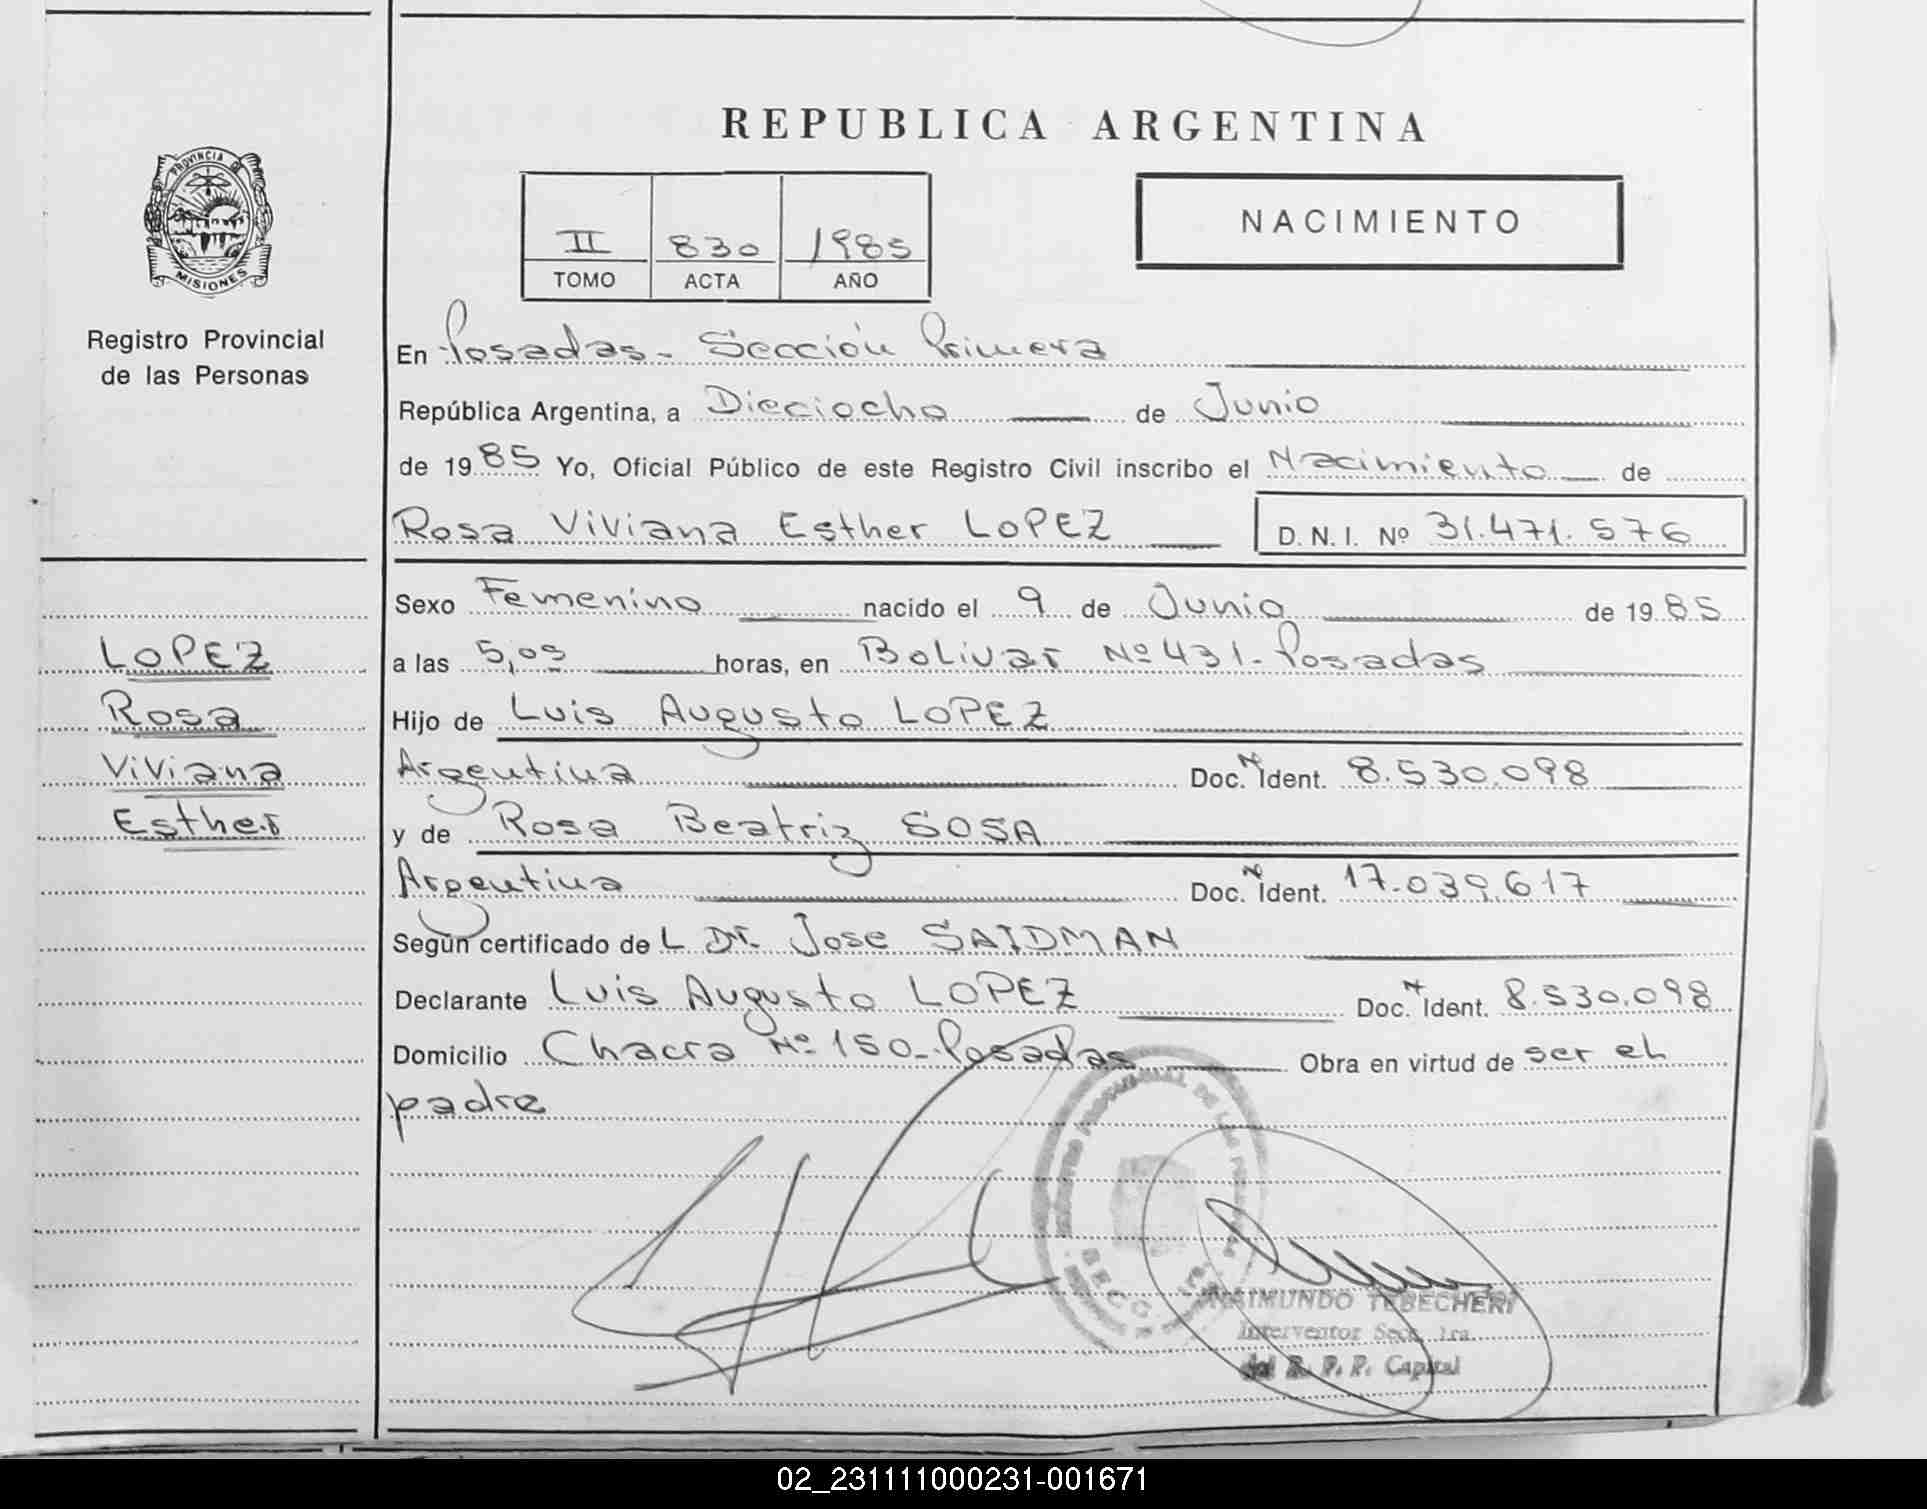 REPUBLICA ARGENTINA
PROVINCIA DE
MISIONES
Registro Provincial
de las Personas
II 830 1985
TOMO ACTA AÑO
NACIMIENTO
En Posadas - Sección Primera
República Argentina, a Dieciocho de Junio
de 1985 Yo, Oficial Público de este Registro Civil inscribo el Nacimiento de
Rosa Viviana Esther LOPEZ D.N.I. Nº 31.471.576
LOPEZ
Rosa
Viviana
Esther
Sexo Femenino nacido el 9 de Junio de 1985
a las 5,05 horas, en Bolivar Nº 431 - Posadas
Hijo de Luis Augusto LOPEZ
Argentina Doc. N Ident. 8.530.098
y de Rosa Beatriz SOSA
Argentina Doc. N Ident. 17.039.617
Según certificado de L Dr. Jose SAIDMAN
Declarante Luis Augusto LOPEZ Doc. N Ident. 8.530.098
Domicilio Chacra Nº 150 - Posadas Obra en virtud de ser el
padre
RAIMUNDO TEBECHERI
Interventor Secc. 1ra.
del R. P. P. Capital
02_231111000231-001671